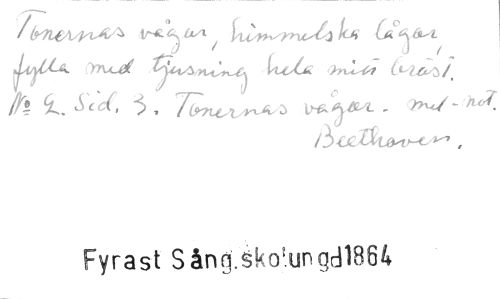 Tonernas vågor, himmelska lågor,
fylla med tjusning hela mitt bröst.
No 2. Sid. 3. Tonernas vågor. - mel-not.
Beethoven.
Fyrast Sång.skolungd1864